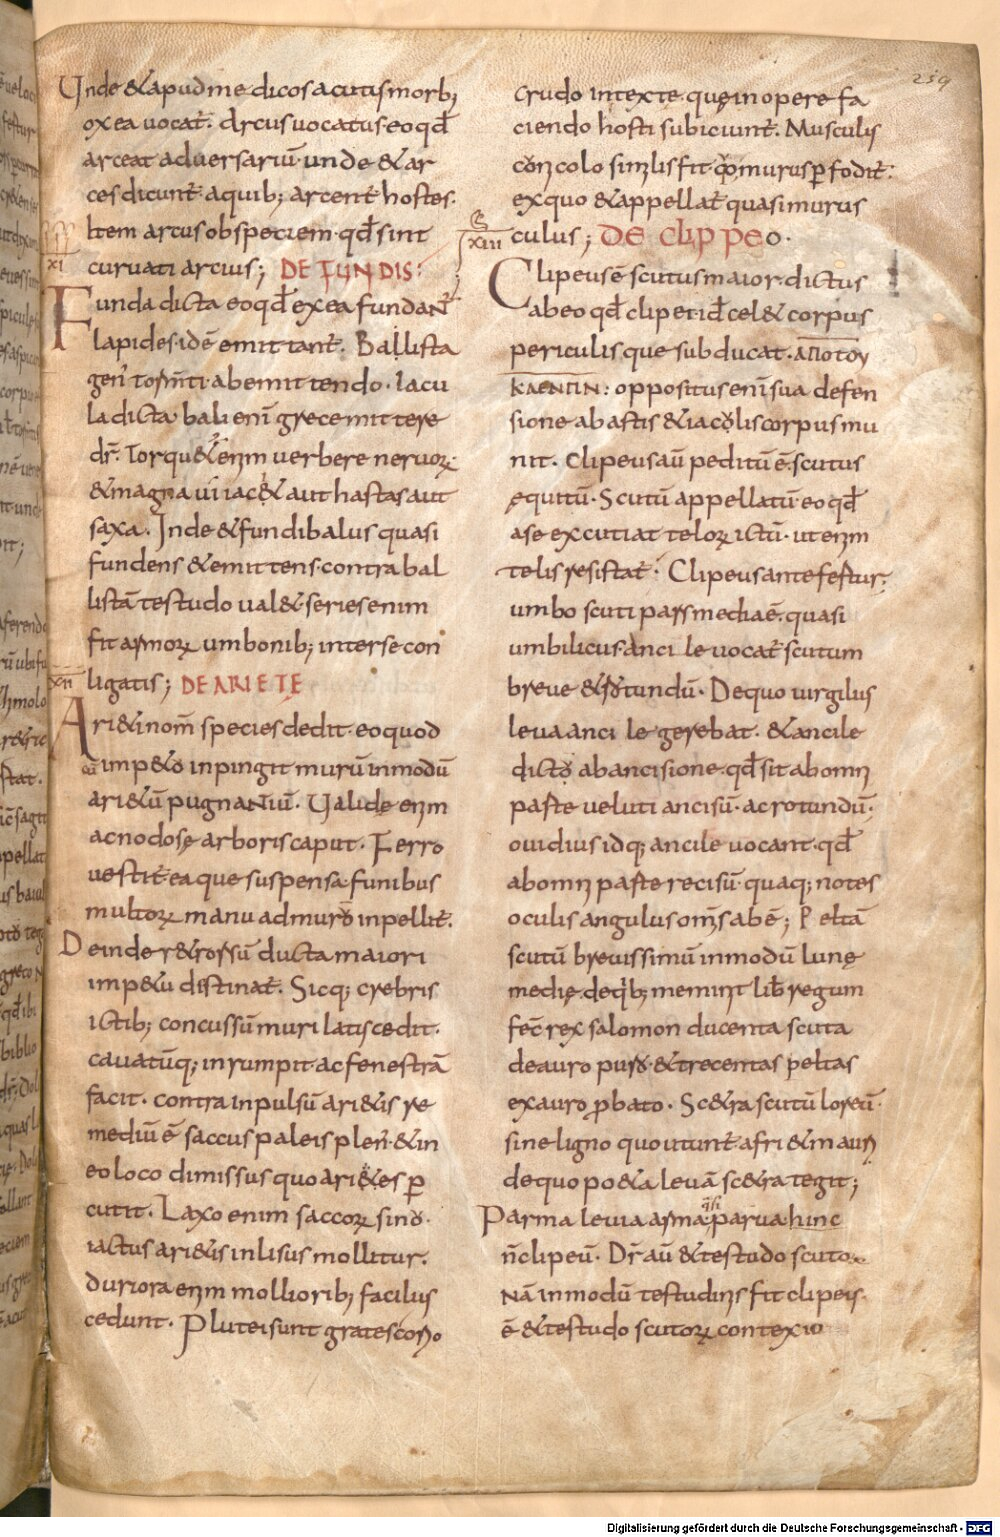 239
Unde &apud me dicos acutis morb;
oxea uocat̄. Arcus uocatus eo qd̄
arceat aduersariū unde & ar
ces dicunt̄. a quib; arcent̄ hostes.
Item arcus ob speciem. qd̄ sint
curuati arcius; DE FUNDIS:
XI
Funda dicta eo qd̄ ex ea fundant̄
lapides. idē emittant̄. Ballista
gen̄ torm̄ti. ab emittendo. Iacu
la dicta. bali enī grece mittere
dr̄. Torqu& enim uerbere neruoꝝ
& magna ui iac& aut hastas aut
saxa. Inde & fundibalus quasi
fundens & emittens. contra bal
listā testudo ual& series enim
fit armoꝝ umbonib; inter se con
XII
ligatis; DE ARIETE
Ari&i nom̄ species dedit. eo quod
cū imp&u inpingit murū in modū
ari&ū pugnantiū. Ualide enim
ac nodosę arboris caput. Ferro
uestit̄ ea que suspensa funibus
multoꝝ manu ad murū inpellit̄.
Deinde r&rorsū ducta maiori
imp&u distinat̄. Sicq; crebris
ictib; concussū muri latis cedit.
cauatūq; inrumpit. ac fenestrā
facit. contra inpulsū ari&is re
mediū ē saccus paleis plen̄. & in
eo loco dimissus quo ari&es ꝑ
cutit. Laxo enim saccoꝝ sinū.
iactus ari&is inlisus mollitur.
duriora enim mollioribus facilius
cedunt. Plutei sunt grates corio
crudo intexte. quę in opere fa
ciendo hosti subiciunt̄. Musculis
similis fit murus ꝑfodit̄.
ex quo & appellat̄ quasi murus
XIII
culus; DE CLIPPEO.
Clipeus ē scutus maior. dictus
ab eo qd̄ clipet. id̄ cel& corpus
periculis que subducat. ΑΠΟΤΟΥ
ΚΛΕΠΠΙΝ: oppositus enī sua defen
sione ab astis & iacūlis corpus mu
nit. Clipeus aū peditū ē. scutus
ęquitū. Scutū appellatū eo qd̄
a se excutiat teloꝝ ictū. ut enim
telis resistat̄. Clipeus ante festur;
umbo scuti pars media ē. quasi
umbilicus. ancile uocat̄ scutum
breue & rotundū. De quo uirgilius
leua ancile gerebat. & ancile
dictū ab ancisione. qd̄ sit ab omni
parte ueluti ancisū. ac rotundū.
ouidius idq; ancile uocant. qd̄
ab omni parte recisū. quaq; notes
oculis angulus om̄s ab ē; Peltā
scutū breuissimū in modū lunę
medię. de qib; meminit lib̄ regum
fec̄ rex salomon ducenta scuta
de auro puro & trecentas peltas
ex auro ꝓbato. Sc&ra scutū loreū.
sine ligno quo utunt̄ afri & mauri
de quo po&a leuā sc&ra tegit;
Parma leuia arma. quasi parua hinc
n̄ clipeū. Dr̄ aū & testudo scuto
nā in modū testudinis fit clipeis.
ē & testudo scutoꝝ contexio
Digitalisierung gefördert durch die Deutsche Forschungsgemeinschaft - DFG